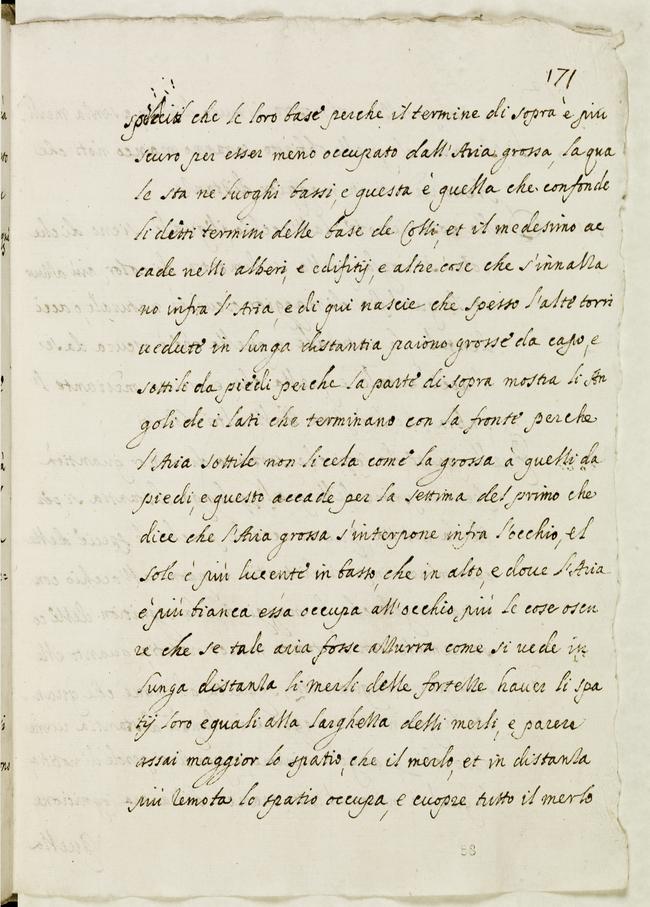 171
che le loro base perche il termine di sopra è più
scuro per esser meno occupato dall'Aria grossa, la qua
le sta ne luoghi bassi, e questa è quella che confonde
li detti termini delle base de Colli, et il medesimo ac
cade nelli alberi, e edifitij, e altre cose che s'innalza
no infra l'Aria, e di qui nascie che spesso l'alte torri
vedute in lunga distantia paiono grosse da capo, e
sottili da piedi perche la parte di sopra mostra li An
goli de i lati che terminano con la fronte perche
l'Aria sottile non li cela come la grossa à quelli da
piedi, e questo accade per la settima del primo che
dice che l'Aria grossa s'interpone infra l'occhio, el
sole è più lucente in basso, che in alto, e dove l'Aria
è più bianca essa occupa all'occhio più le cose oscu
re che se tale aria fosse azzurra come si vede in
lunga distanza li merli delle fortezze haver li spa
tij loro eguali alla larghezza delli merli, e parere
assai maggior lo spatio, che il merlo, et in distanza
più remota lo spatio occupa, e cuopre tutto il merlo
58